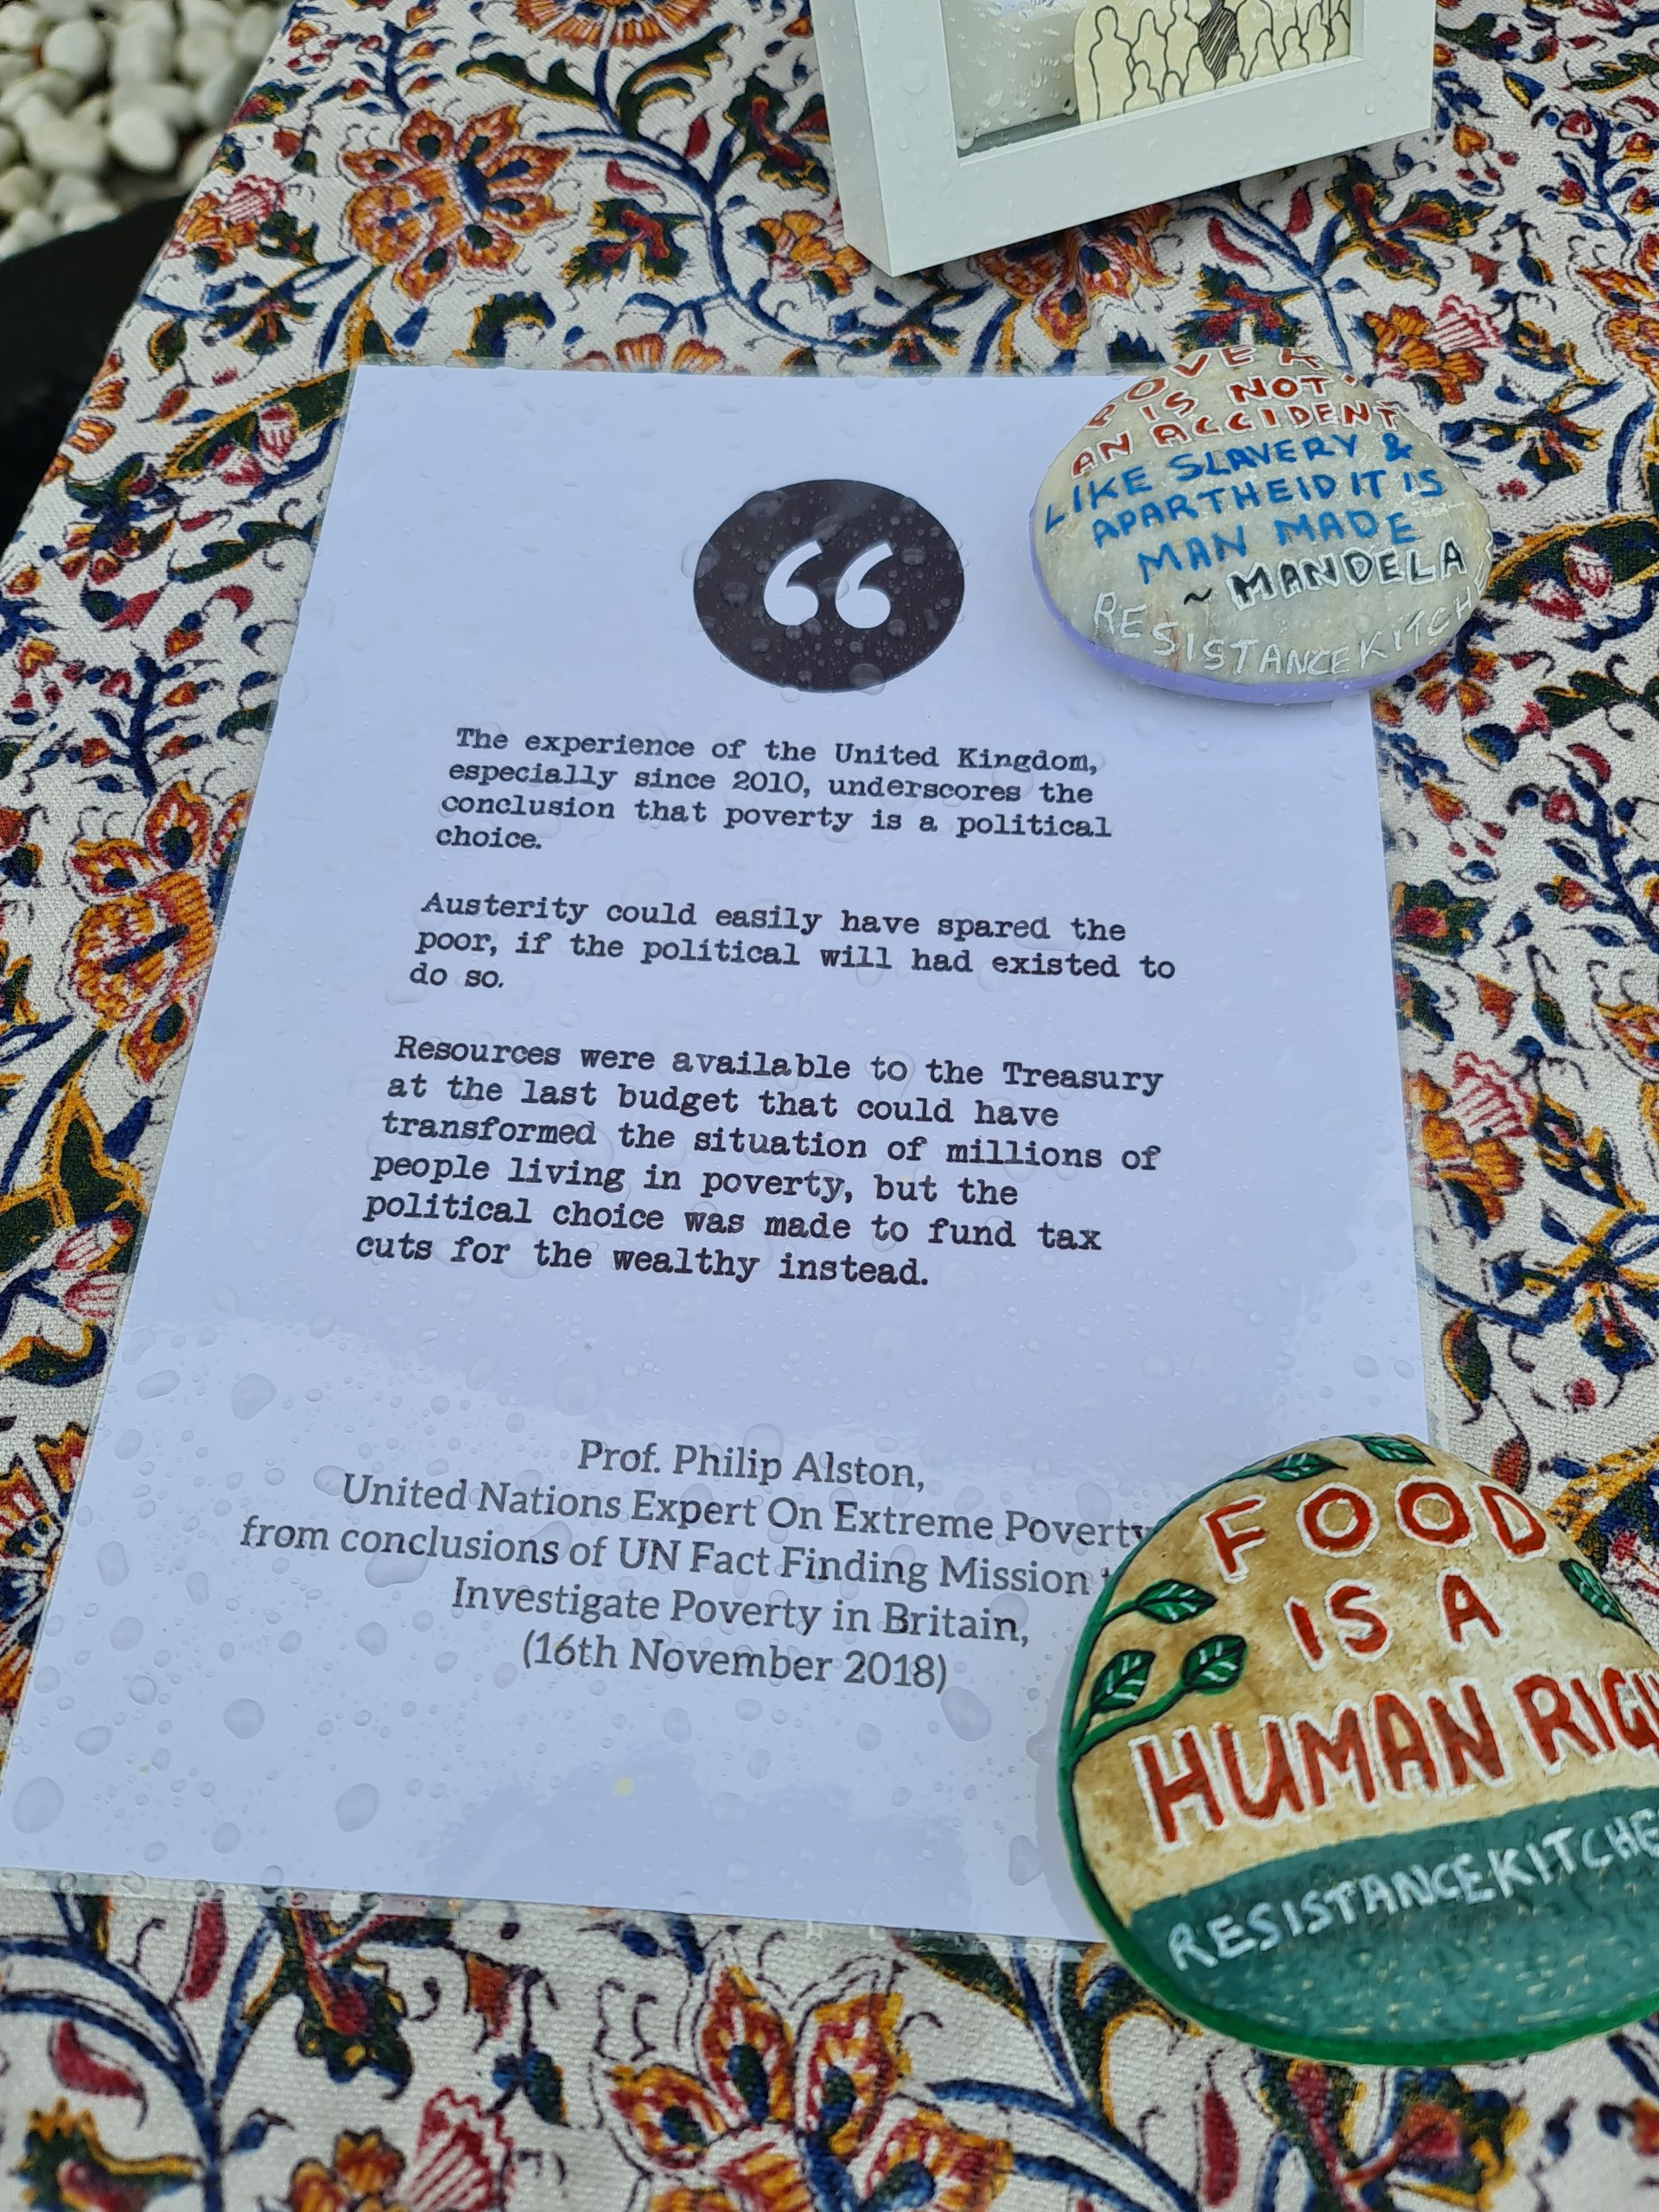 IS NOT
AN ACCIDENT
LIKE SLAVERY &
APARTHEID IT IS
MAN MADE
~ MANDELA
“
The experience of the United Kingdom,
especially since 2010, underscores the
conclusion that poverty is a political
choice.
Austerity could easily have spared the
poor, if the political will had existed to
do so.
Resources were available to the Treasury
at the last budget that could have
transformed the situation of millions of
people living in poverty, but the
political choice was made to fund tax
cuts for the wealthy instead.
Prof. Philip Alston,
United Nations Expert On Extreme Poverty
from conclusions of UN Fact Finding Mission
Investigate Poverty in Britain,
(16th November 2018)
FOOD
IS A
HUMAN